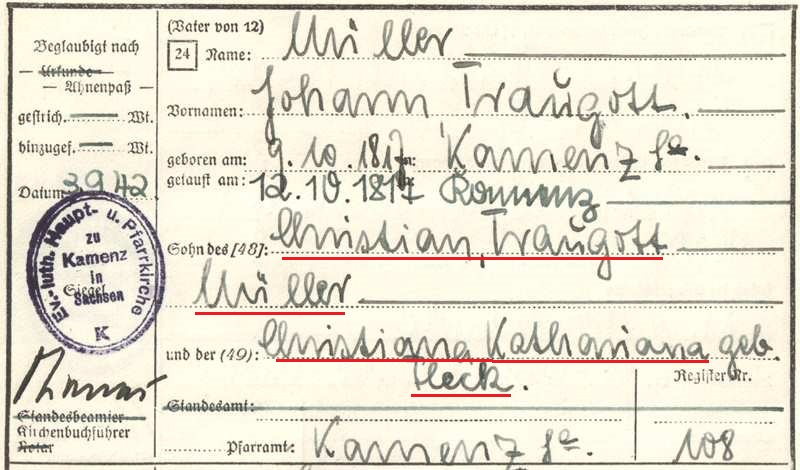 (Vater von 12)
24 Name: Müller
Vornamen: Johann Traugott.
geboren am: 9.10.1817 in: Kamenz Sa.
getauft am: 12.10.1817 Kamenz
Sohn des [48]: Christian, Traugott
Müller
und der (49): Christiana Kathariana geb.
Fleck.
Register Nr.
Standesamt:
Pfarramt: Kamenz Sa. 108
Beglaubigt nach
— Urkunde —
— Ahnenpaß —
gestrich. Wt.
hinzugef. Wt.
Datum 3 9 42
Ev.-luth. Haupt- u. Pfarrkirche
zu
Kamenz
in
Siegel
Sachsen
K
Standesbeamter
Kirchenbuchführer
Notar